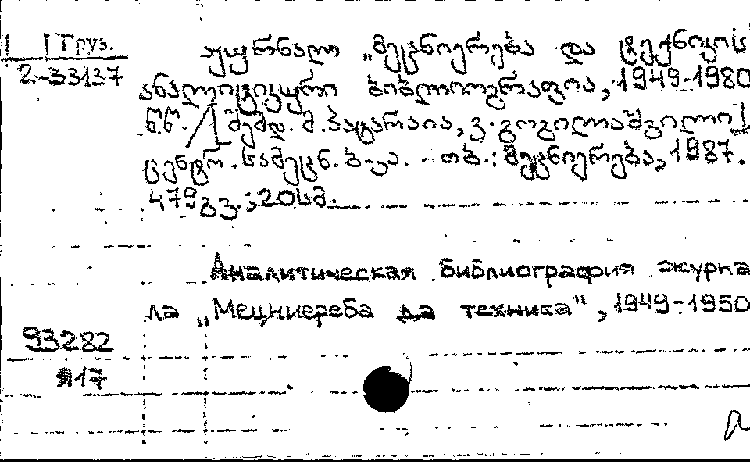 Груз.
2-33137
ჟურნალ „მეცნიერება და ტექნიკის
ანალიტიკური ბიბლიოგრაფია, 1949-1980
წ.წ. / [შემდ. მ. პატარაია, ვ. გოგილაშვილი]
ცენტრ. სამეცნ. ბ-კა. - თბ.: მეცნიერება, 1987.
479 გვ.; 20 სმ.
Аналитическая библиография журна
ла „Мецниереба да техника", 1949-1950
93282
я17